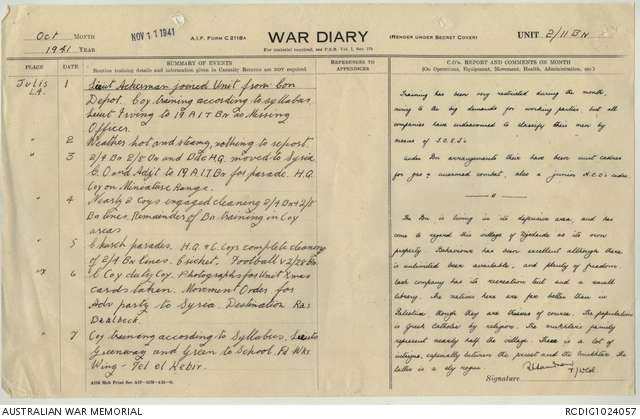 Oct MONTH
1941 YEAR
NOV 11 1941
A.I.F. FORM C 2118A
WAR DIARY
(RENDER UNDER SECRET COVER)
UNIT 2/11 Bn
PLACE
DATE
SUMMARY OF EVENTS
Routine training details and information given in Casualty Returns are NOT required
REFERENCES TO
APPENDICES
C.O's. REPORT AND COMMENTS ON MONTH
(On Operations, Equipment, Movement, Health, Administration, etc.)
Julis 1 Lieut Ackerman joined Unit from Con
L.A. Depot. Coy training according to syllabus
Lieut Irving to 19 A I T Bn as Messing
Officer.
" 2 Weather hot and steamy, nothing to report
" 3 2/4 Bn 2/8 Bn and Bde H.Q. moved to Syria
C.O and Adjt to 19 A I T Bn for parade. H.Q.
Coy on Miniature Range.
" 4 Nearly 2 Coys engaged cleaning 2/4 Bn & 2/8
Bn lines. Remainder of Bn training in Coy
areas
" 5 Church parades. H.Q. & C Coys complete cleaning
of 2/4 Bn lines. Cricket. Football v 2/28 Bn
" 6 C Coy duty Coy. Photographs for Unit Xmas
cards taken. Movement Order for
Adv party to Syria. Destination Ras
Baalbeck.
" 7 Coy training according to Syllabus. Lieuts
Greenway and Green to School. Fd Wks
Wing - Tel el Kebir.
Training has been very restricted during the month,
owing to the big demands for working parties, but all
companies have endeavoured to classify their men by
means of T.O.E.T's.
Under Bn arrangements there have been unit cadres
for gas & unarmed combat, also a junior N.C.O's cadre.
The Bn is living in its defensive area, and has
come to regard this village of Djedeide as its own
property. Behaviour has been excellent although there
is unlimited beer available, and plenty of freedom.
Each company has its recreation hut and a small
library. The natives here are far better than in
Palestine though they are thieves of course. The population
is Greek Catholic by religion. The mukhtar's family
represent nearly half the village. There is a lot of
intrigue, especially between the priest and the mukhtar. The
latter is a sly rogue.
Signature
AUSTRALIAN WAR MEMORIAL
RCDIG1024057